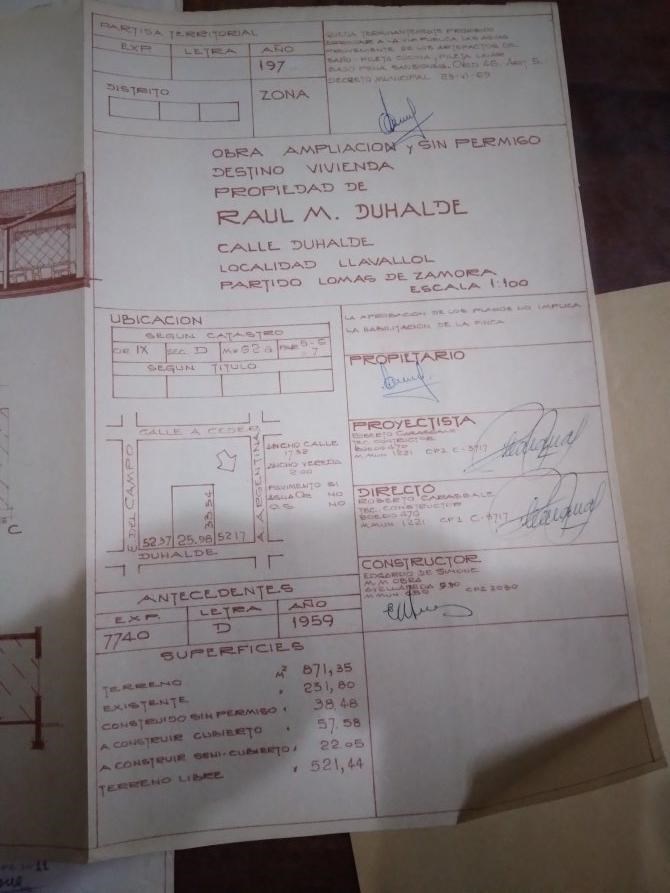 PARTIDA TERRITORIAL
EXP. LETRA AÑO
197
DISTRITO
ZONA
QUEDA TERMINANTEMENTE PROHIBIDO
ARROJAR A LA VIA PUBLICA LAS AGUAS
PROVENIENTE DE LOS ARTEFACTOS DE
BAÑO - PILETA COCINA, PILETA LAVAR
BAJO PENA ORD. 46. ART. 5.
DECRETO MUNICIPAL 69
OBRA AMPLIACION y SIN PERMISO
DESTINO VIVIENDA
PROPIEDAD DE
RAUL M. DUHALDE
CALLE DUHALDE
LOCALIDAD LLAVALLOL
PARTIDO LOMAS DE ZAMORA
ESCALA 1:100
UBICACION
SEGUN CATASTRO
CIR IX SEC. D
SEGUN TITULO
CALLE A CEDER
E. DEL CAMPO
A. ARGENTINA
33.54
52.37 25.98 52.17
DUHALDE
ANCHO CALLE
17.32
ANCHO VEREDA
2.00
PAVIMENTO SI
AGUA NO
O.S. NO
ANTECEDENTES
EXP. LETRA AÑO
7740 D 1959
SUPERFICIES
TERRENO M² 871,35
EXISTENTE " 231,80
CONSTRUIDO SIN PERMISO " 38.48
A CONSTRUIR CUBIERTO " 57.58
A CONSTRUIR SEMI-CUBIERTO " 22.05
TERRENO LIBRE " 521,44
LA APROBACION DE LOS PLANOS NO IMPLICA
LA HABILITACION DE LA FINCA
PROPIETARIO
PROYECTISTA
ROBERTO
TEC. CONSTRUCTOR
BOEDO 470
M.MUN 1221 CP2 C-3717
DIRECTO
ROBERTO
TEC. CONSTRUCTOR
BOEDO 470
M.MUN 1221 CP2 C-3717
CONSTRUCTOR
EDGARDO DE SIMONE
M.M. OBRA
AVELLANEDA
M.MUN CP2 2030
C
11